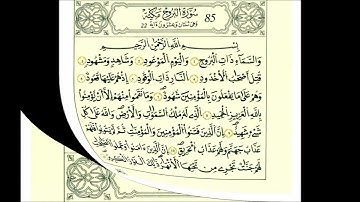 سُورَةُ البُرُوجِ مَكِّيَّة 85
وَهِيَ اثْنَتَانِ وَعِشْرُونَ آيَة 22
بِسْمِ اللَّهِ الرَّحْمَٰنِ الرَّحِيمِ
وَالسَّمَاءِ ذَاتِ الْبُرُوجِ ١ وَالْيَوْمِ الْمَوْعُودِ ٢ وَشَاهِدٍ وَمَشْهُودٍ ٣
قُتِلَ أَصْحَابُ الْأُخْدُودِ ٤ النَّارِ ذَاتِ الْوَقُودِ ٥ إِذْ هُمْ عَلَيْهَا قُعُودٌ ٦
وَهُمْ عَلَىٰ مَا يَفْعَلُونَ بِالْمُؤْمِنِينَ شُهُودٌ ٧ وَمَا نَقَمُوا مِنْهُمْ إِلَّا أَنْ يُؤْمِنُوا
بِاللَّهِ الْعَزِيزِ الْحَمِيدِ ٨ الَّذِي لَهُ مُلْكُ السَّمَٰوَٰتِ وَالْأَرْضِ وَاللَّهُ عَلَىٰ كُلِّ
شَيْءٍ شَهِيدٌ ٩ إِنَّ الَّذِينَ فَتَنُوا الْمُؤْمِنِينَ وَالْمُؤْمِنَٰتِ ثُمَّ لَمْ يَتُوبُوا فَلَهُمْ
عَذَابُ جَهَنَّمَ وَلَهُمْ عَذَابُ الْحَرِيقِ ١٠ إِنَّ الَّذِينَ آمَنُوا وَعَمِلُوا الصَّٰلِحَٰتِ
لَهُمْ جَنَّٰتٌ تَجْرِي مِنْ تَحْتِهَا الْأَنْهَٰرُ ذَٰلِكَ